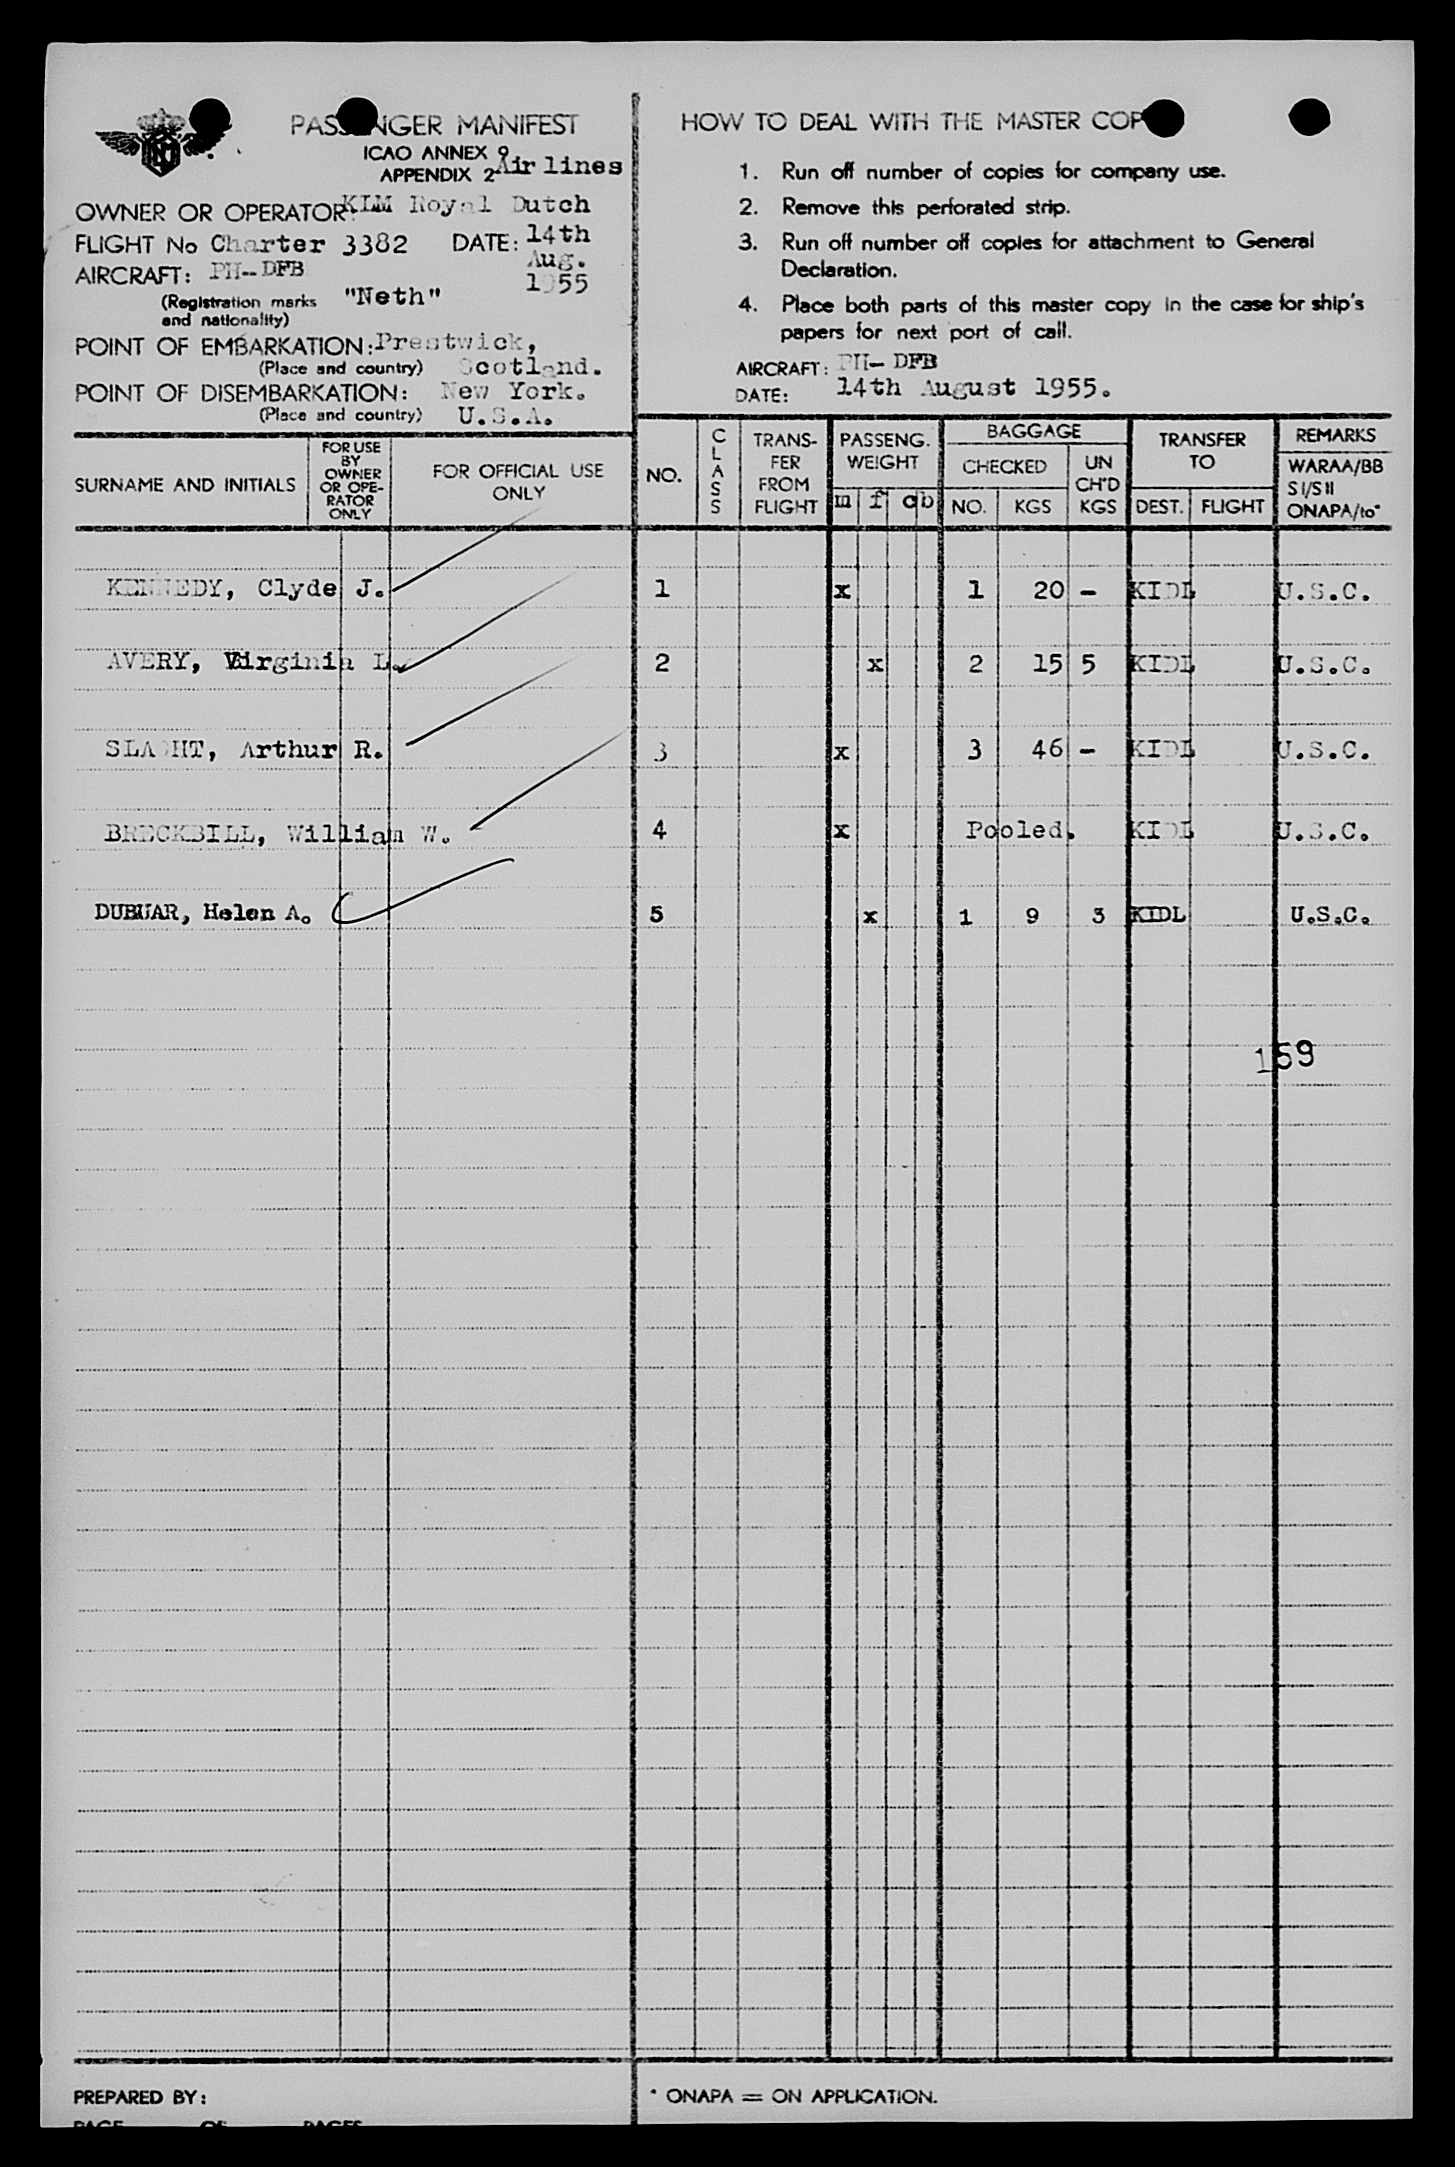 PASSENGER MANIFEST
ICAO ANNEX 9
APPENDIX 2
Air lines
OWNER OR OPERATOR: KLM Royal Dutch
FLIGHT No Charter 3382 DATE: 14th
Aug.
1955
AIRCRAFT: PH-DFB
(Registration marks and nationality) "Neth"
POINT OF EMBARKATION: Prestwick,
(Place and country) Scotland.
POINT OF DISEMBARKATION: New York.
(Place and country) U.S.A.
HOW TO DEAL WITH THE MASTER COP
1. Run off number of copies for company use.
2. Remove this perforated strip.
3. Run off number off copies for attachment to General
Declaration.
4. Place both parts of this master copy in the case for ship's
papers for next port of call.
AIRCRAFT: PH-DFB
DATE: 14th August 1955.
SURNAME AND INITIALS
FOR USE
BY
OWNER
OR OPE-
RATOR
ONLY
FOR OFFICIAL USE
ONLY
NO.
CLASS
TRANS-
FER
FROM
FLIGHT
PASSENG.
WEIGHT
m f c b
BAGGAGE
CHECKED
NO. KGS
UN
CH'D
KGS
TRANSFER
TO
DEST. FLIGHT
REMARKS
WARAA/BB
SI/SII
ONAPA/to*
KENNEDY, Clyde J. 1 x 1 20 - KIDL U.S.C.
AVERY, Virginia L. 2 x 2 15 5 KIDL U.S.C.
SLAGHT, Arthur R. 3 x 3 46 - KIDL U.S.C.
BRECKBILL, William W. 4 x Pooled. KIDL U.S.C.
Helen A. 5 x 1 9 3 KIDL U.S.C.
159
PREPARED BY:
* ONAPA = ON APPLICATION.
PAGE OF PAGES